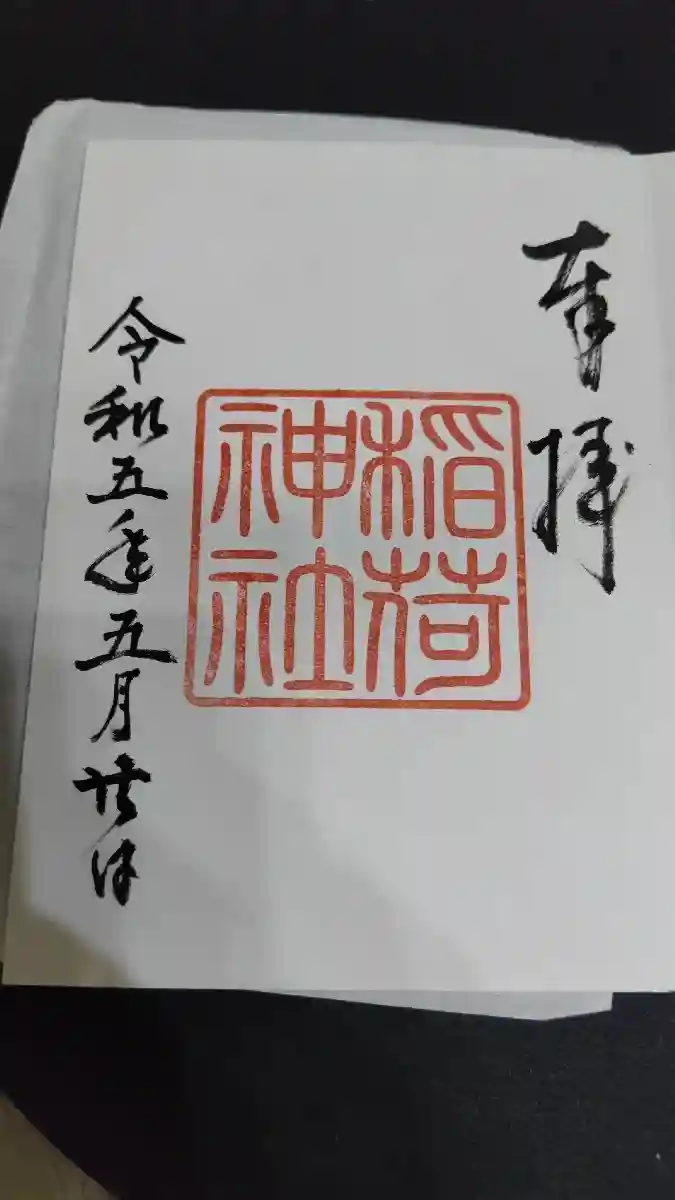 奉拝
稲荷
神社
令和五年五月日